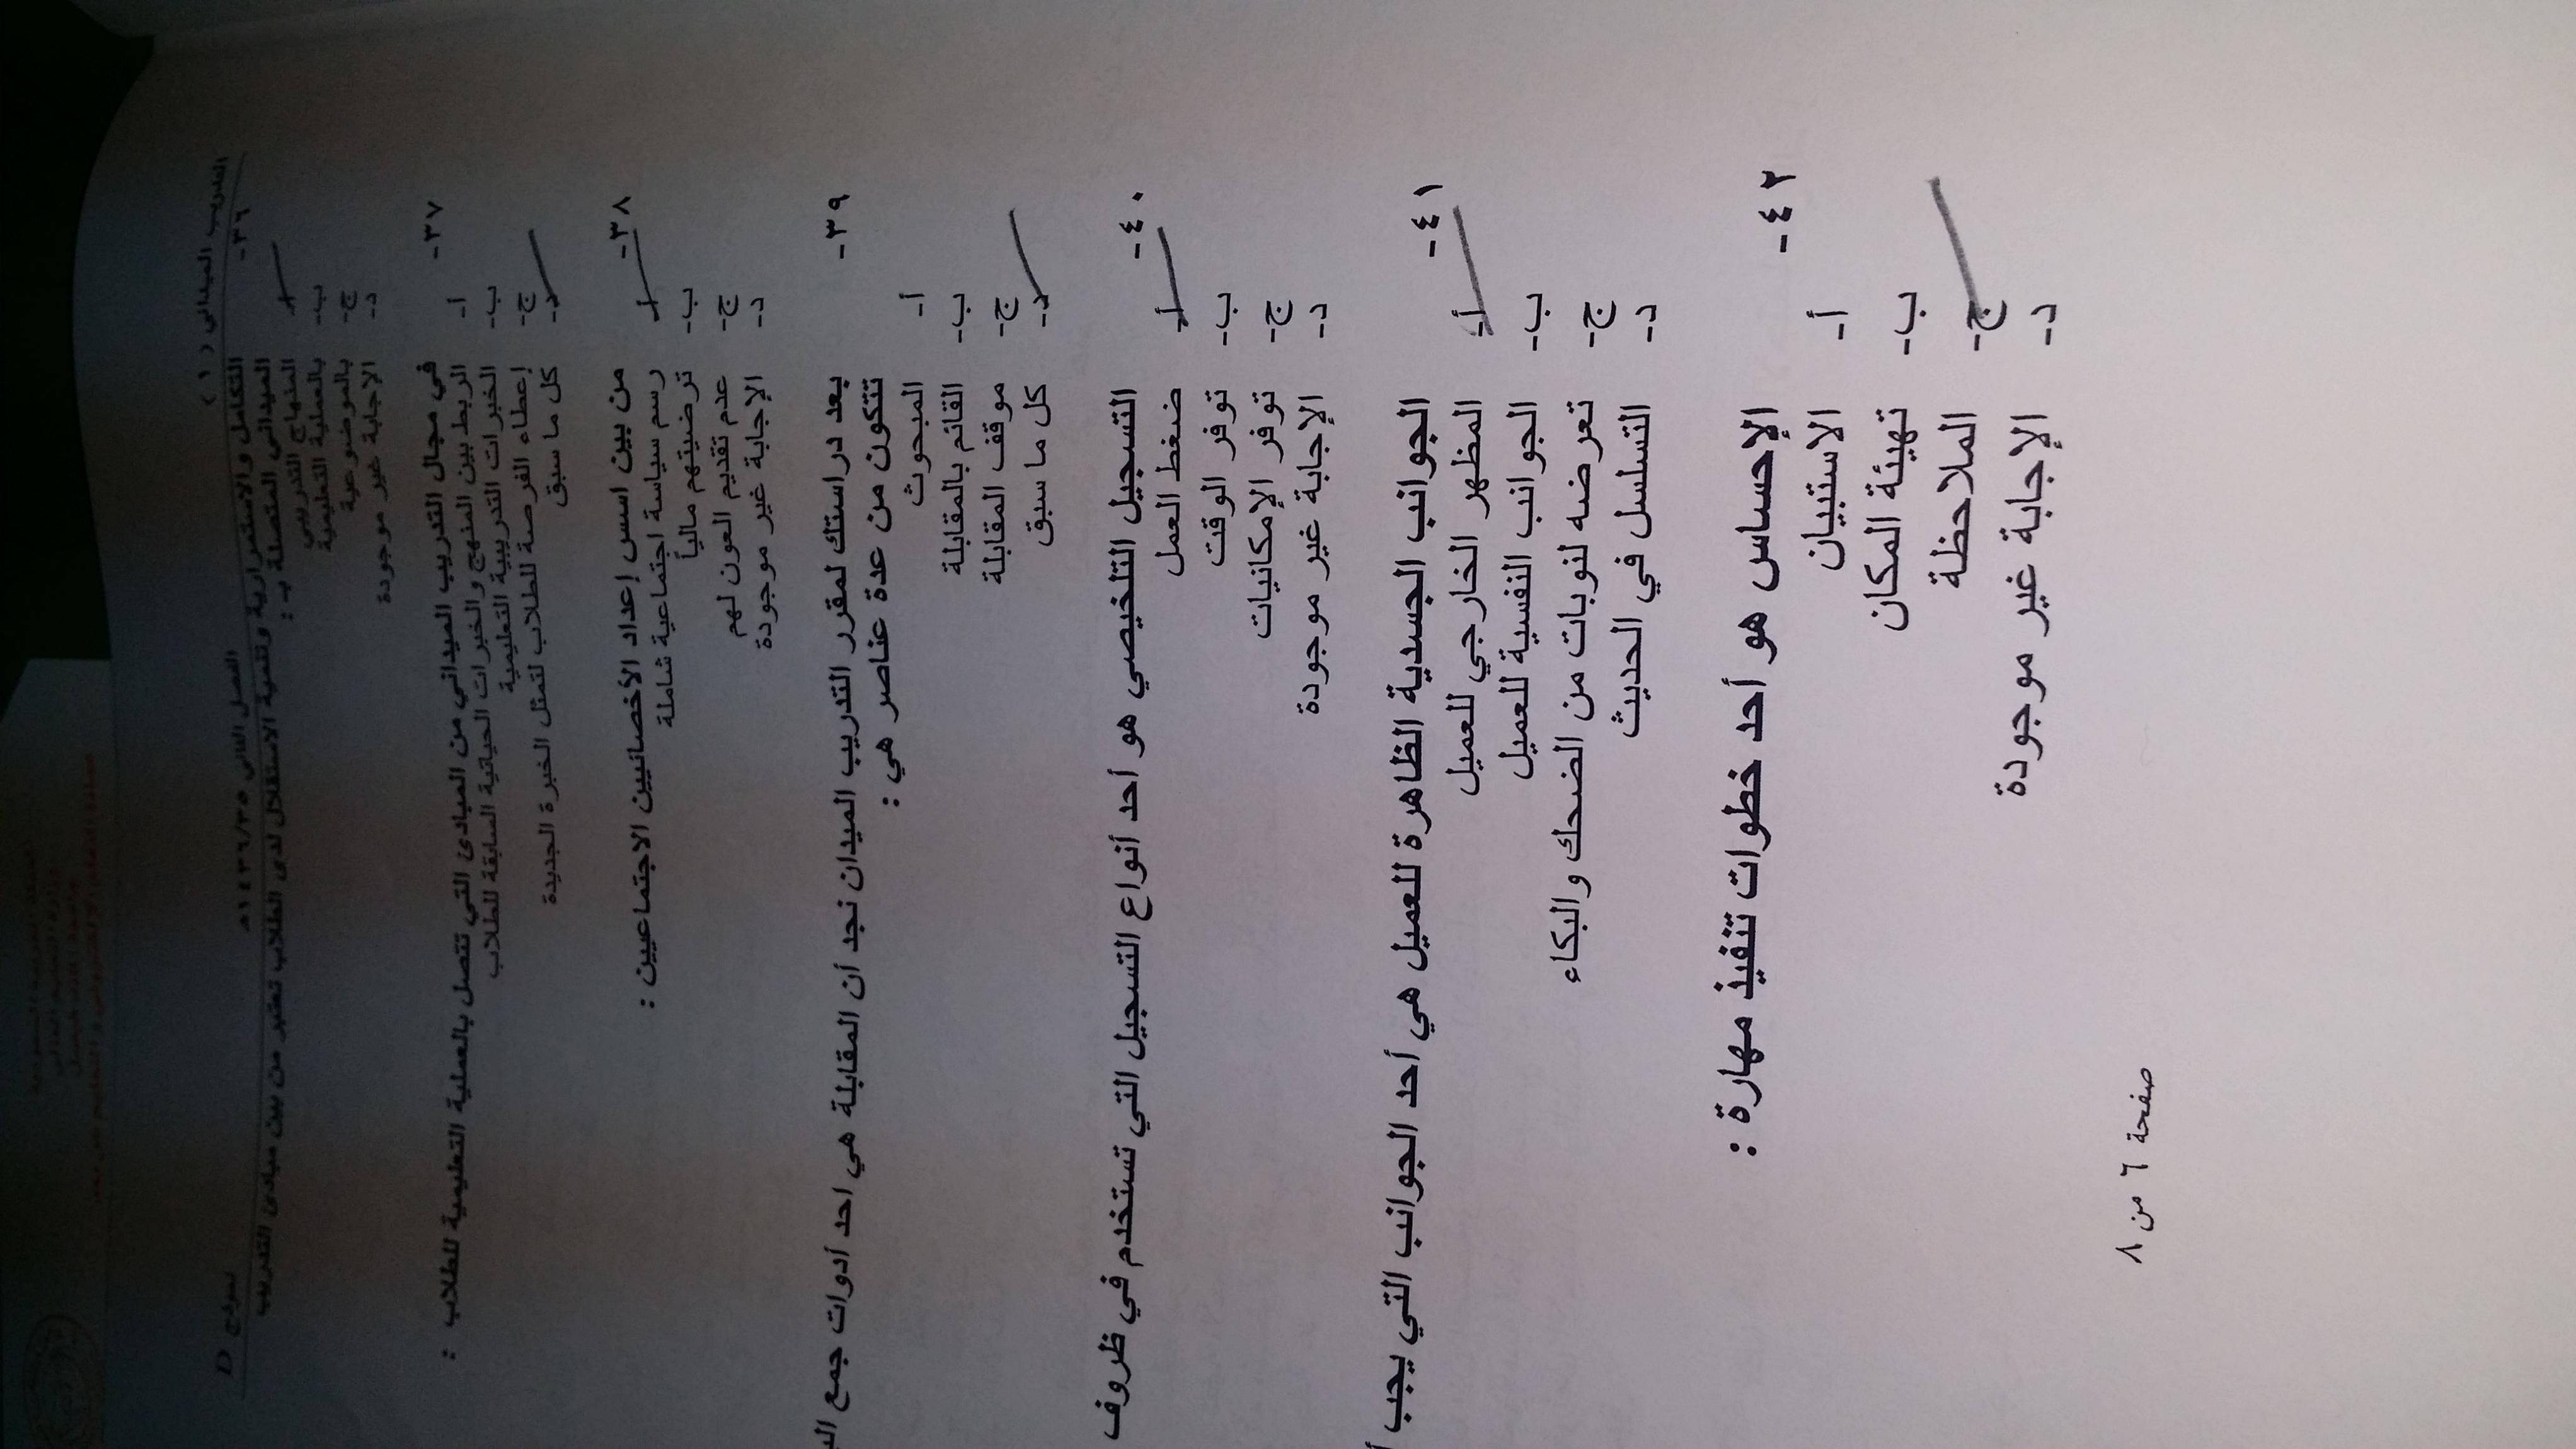 التدريب الميداني ( ١ ) الفصل الثاني ١٤٣٦/٣٥هـ نموذج D
٣٦- التكامل والاستمرارية وتنمية الاستقلال لدى الطلاب تعتبر من بين مبادئ التدريب
الميداني المتصلة بـ :
أ- المنهاج التدريبي
ب- بالعملية التعليمية
ج- بالموضوعية
د- الإجابة غير موجودة
٣٧- في مجال التدريب الميداني من المبادئ التي تتصل بالعملية التعليمية للطلاب :
أ- الربط بين المنهج والخبرات الحياتية السابقة للطلاب
ب- الخبرات التدريبية التعليمية
ج- إعطاء الفرصة للطلاب لتمثل الخبرة الجديدة
د- كل ما سبق
٣٨- من بين اسس إعداد الأخصائيين الاجتماعيين :
أ- رسم سياسة اجتماعية شاملة
ب- ترضيتهم مالياً
ج- عدم تقديم العون لهم
د- الإجابة غير موجودة
٣٩- بعد دراستك لمقرر التدريب الميدان نجد أن المقابلة هي احد أدوات جمع
تتكون من عدة عناصر هي :
أ- المبحوث
ب- القائم بالمقابلة
ج- موقف المقابلة
د- كل ما سبق
٤٠- التسجيل التلخيصي هو أحد أنواع التسجيل التي تستخدم في ظروف
أ- ضغط العمل
ب- توفر الوقت
ج- توفر الإمكانيات
د- الإجابة غير موجودة
٤١- الجوانب الجسدية الظاهرة للعميل هي أحد الجوانب التي يجب
أ- المظهر الخارجي للعميل
ب- الجوانب النفسية للعميل
ج- تعرضه لنوبات من الضحك والبكاء
د- التسلسل في الحديث
٤٢- الإحساس هو أحد خطوات تنفيذ مهارة :
أ- الاستبيان
ب- تهيئة المكان
ج- الملاحظة
د- الإجابة غير موجودة
صفحة ٦ من ٨